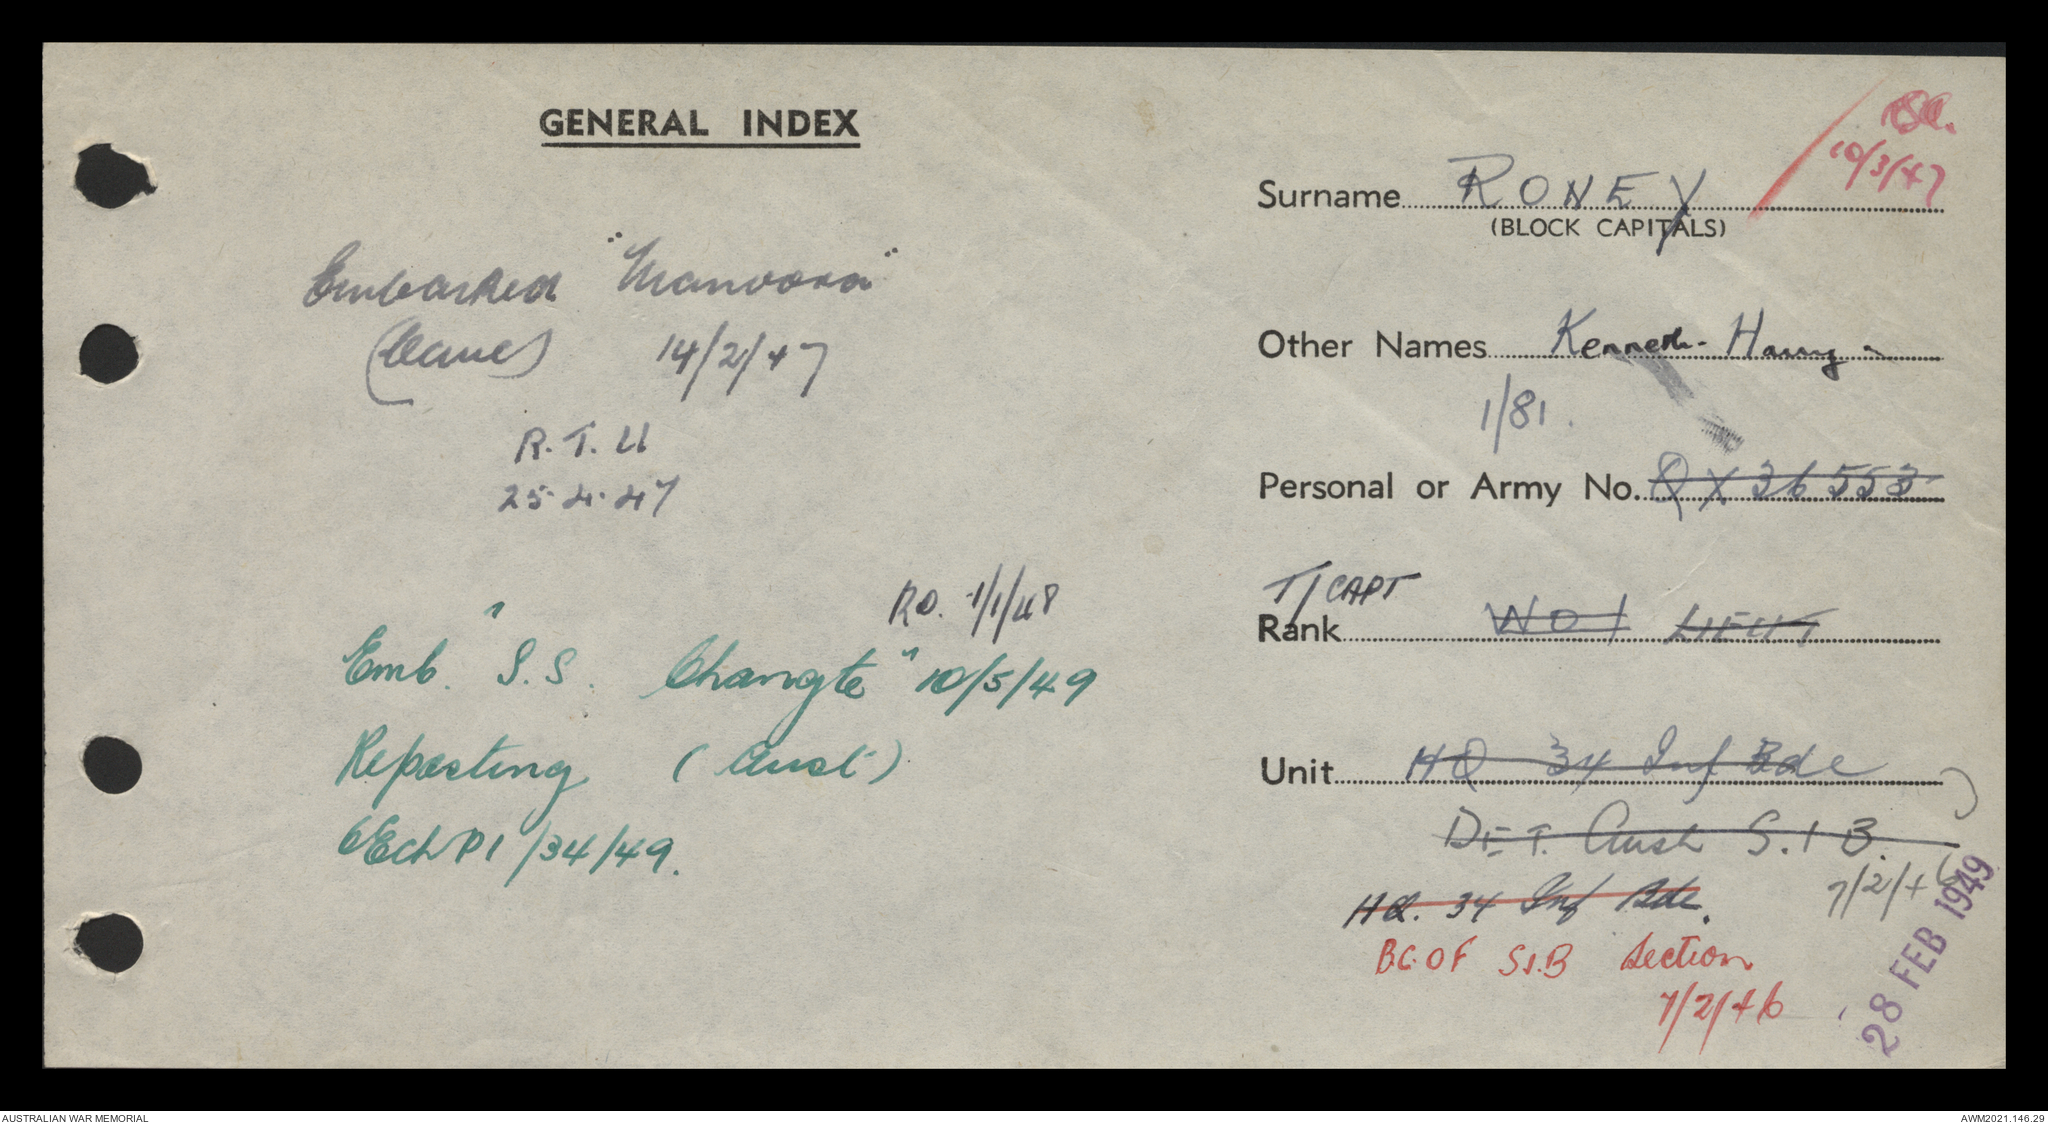 GENERAL INDEX
Embarked "Manoora"
(leave) 14/2/47
R.T.U
25.4.47
RO. 1/1/48
Emb. "S.S. Changte" 10/5/49
Reposting (Aust)
6Ech P1/34/49.
10/3/47
Surname RONEY
(BLOCK CAPITALS)
Other Names Kenneth Harry
1/81.
Personal or Army No. QX36553
T/CAPT
Rank WO1 LIEUT
Unit HQ 34 Inf Bde
DET. Aust S.I B.
7/2/46
HQ. 34 Inf Bde.
B.C.O.F S.I.B Section
7/2/46
28 FEB 1949
AUSTRALIAN WAR MEMORIAL
AWM2021.146.29